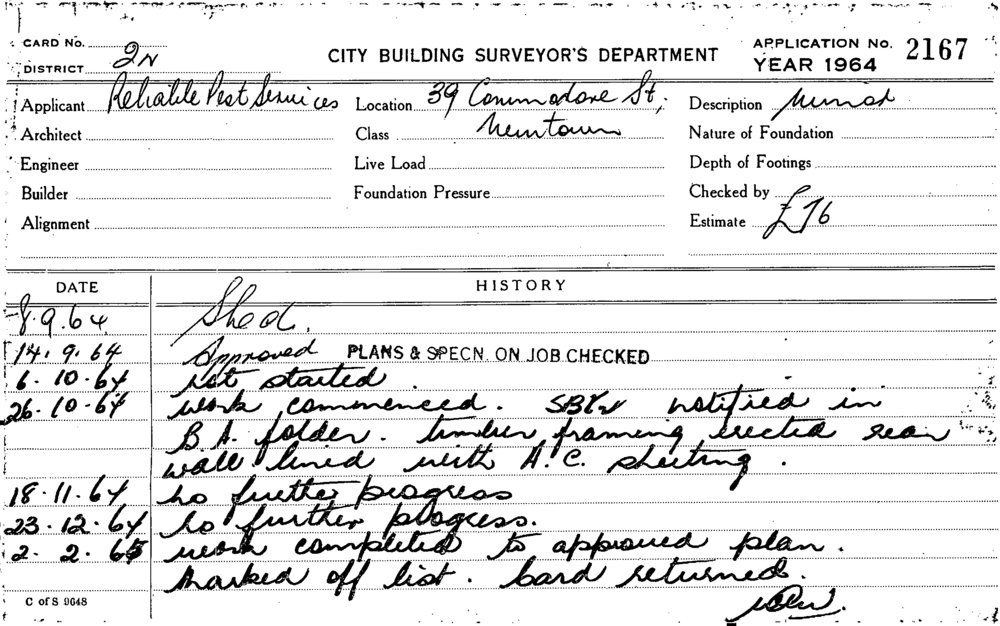 CARD No. 2N
DISTRICT
CITY BUILDING SURVEYOR'S DEPARTMENT
APPLICATION No. 2167
YEAR 1964
Applicant Reliable Pest Services
Location 39 Commodore St,
Newtown
Description Minor
Architect
Class
Nature of Foundation
Engineer
Live Load
Depth of Footings
Builder
Foundation Pressure
Checked by
Alignment
Estimate £76
DATE HISTORY
8.9.64 Shed.
14.9.64 Approved PLANS & SPECN. ON JOB CHECKED
6.10.64 Not started
26.10.64 work commenced. notified in
B.A. folder. timber framing erected rear
wall lined with A.C. sheeting.
18.11.64 No further progress
23.12.64 No further progress.
2.2.65 work completed to approved plan.
Marked off list. Card returned.
C of S 9648